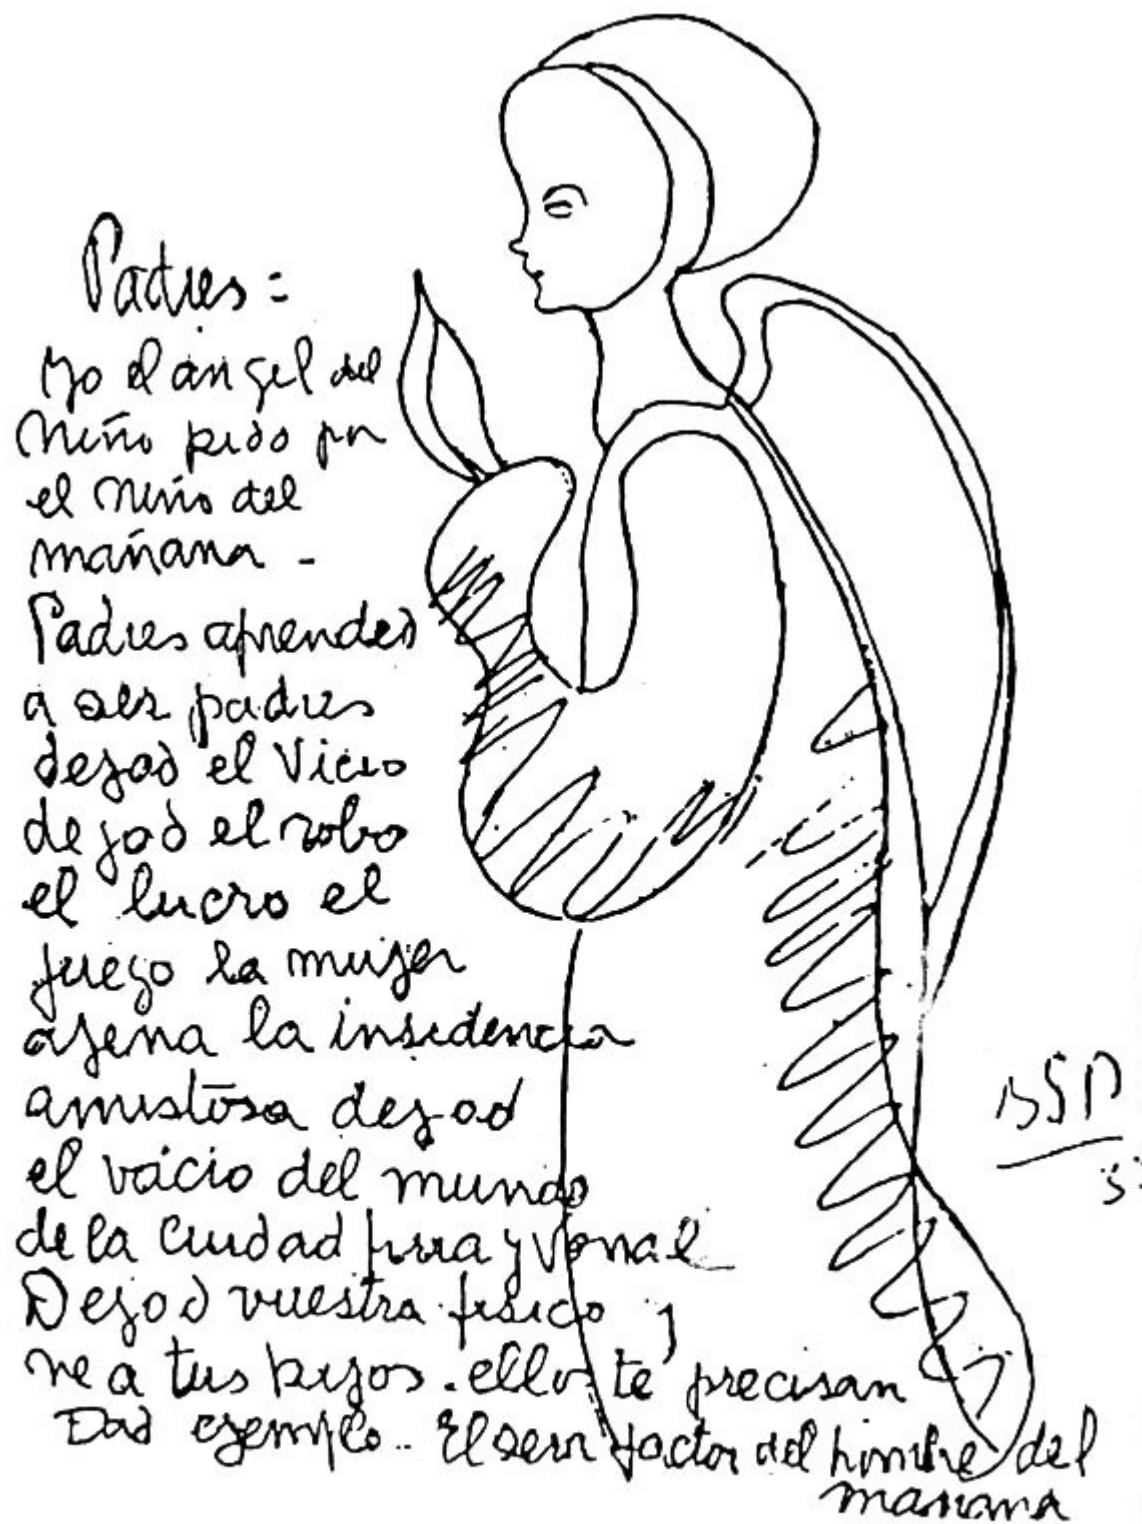 Padres =
yo el angel del
Niño pido por
el niño del
mañana -
Padres aprended
a ser padres
dejad el Vicio
dejad el robo
el lucro el
juego la mujer
ajena la insidencia
amistosa dejad
el vacio del mundo
de la Ciudad fria y venal
Dejad vuestra fisico y
ve a tus hijos. ellos te precisan
Dad ejemplo.. El sera factor del hombre del
mañana
BSP